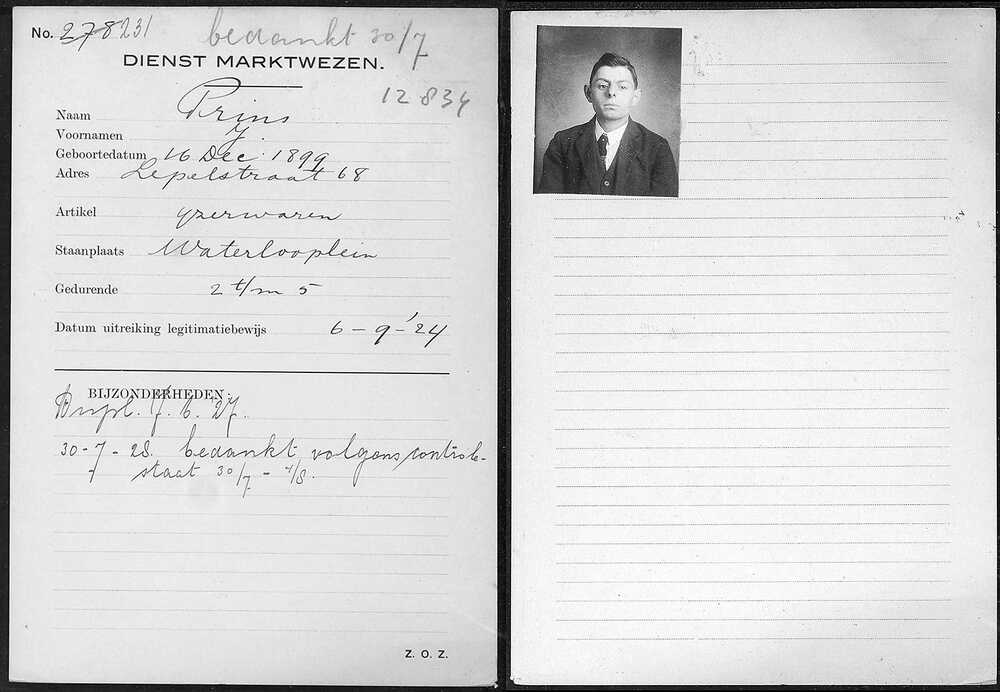 No. 278231
bedankt 30/7
DIENST MARKTWEZEN.
12834
Naam Prins
Voornamen J.
Geboortedatum 16 Dec. 1899
Adres Lepelstraat 68
Artikel yzerwaren
Staanplaats Waterlooplein
Gedurende 2 t/m 5
Datum uitreiking legitimatiebewijs 6-9-'24
BIJZONDERHEDEN:
Dupl. 7.6.27.
30-7-28 bedankt volgens controle-
staat 30/7 - 4/8.
Z. O. Z.